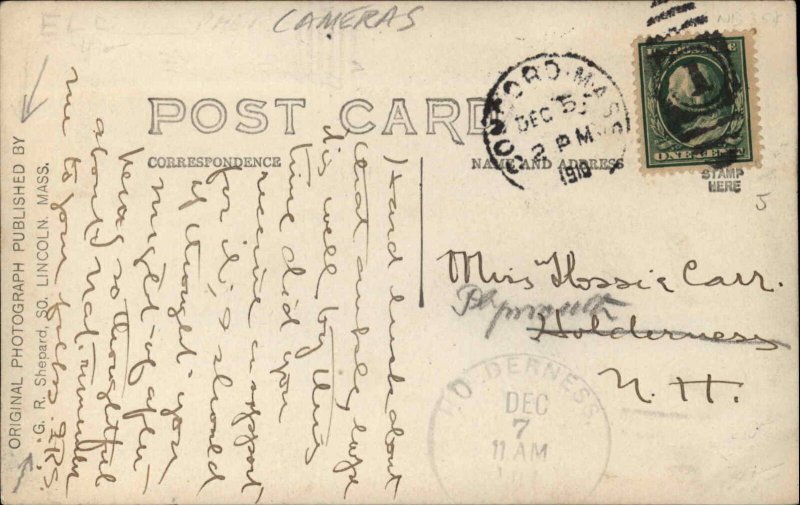 CAMERAS
POST CARD
CORRESPONDENCE
NAME AND ADDRESS
CONCORD. MASS.
DEC 5
2 PM
1910
1
ONE CENT
STAMP
HERE
5
Miss Flossie Carr.
Plymouth
Holderness
N. H.
HOLDERNESS.
DEC
7
11 AM
ORIGINAL PHOTOGRAPH PUBLISHED BY
G. R. Shepard, SO. LINCOLN. MASS.
Hard luck about
that ankle, hope
its well by this
time did you
receive a support
for it, I should
if thought you
might - of after
being so thoughtful
about
me to your folks. GRS.